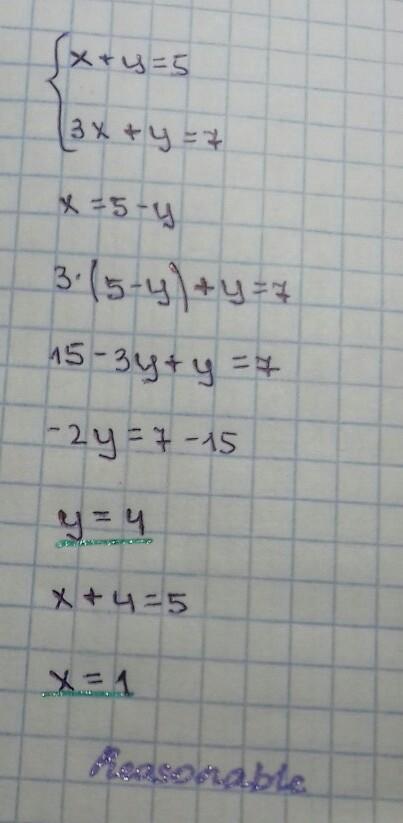 x + y = 5
3x + y = 7
x = 5 - y
3 · (5 - y) + y = 7
15 - 3y + y = 7
-2y = 7 - 15
y = 4
x + 4 = 5
x = 1
Reasonable